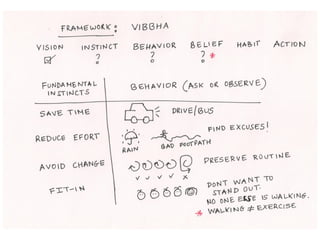 FRAMEWORK: VIBBHA
VISION INSTINCT BEHAVIOR BELIEF HABIT ACTION
? ? ? *
FUNDAMENTAL INSTINCTS
BEHAVIOR (ASK OR OBSERVE)
SAVE TIME
DRIVE/BUS
REDUCE EFORT
RAIN
BAD FOOTPATH
FIND EXCUSES!
AVOID CHANGE
PRESERVE ROUTINE
FIT-IN
DONT WANT TO
STAND OUT.
NO ONE ELSE IS WALKING.
* WALKING ≠ EXERCISE